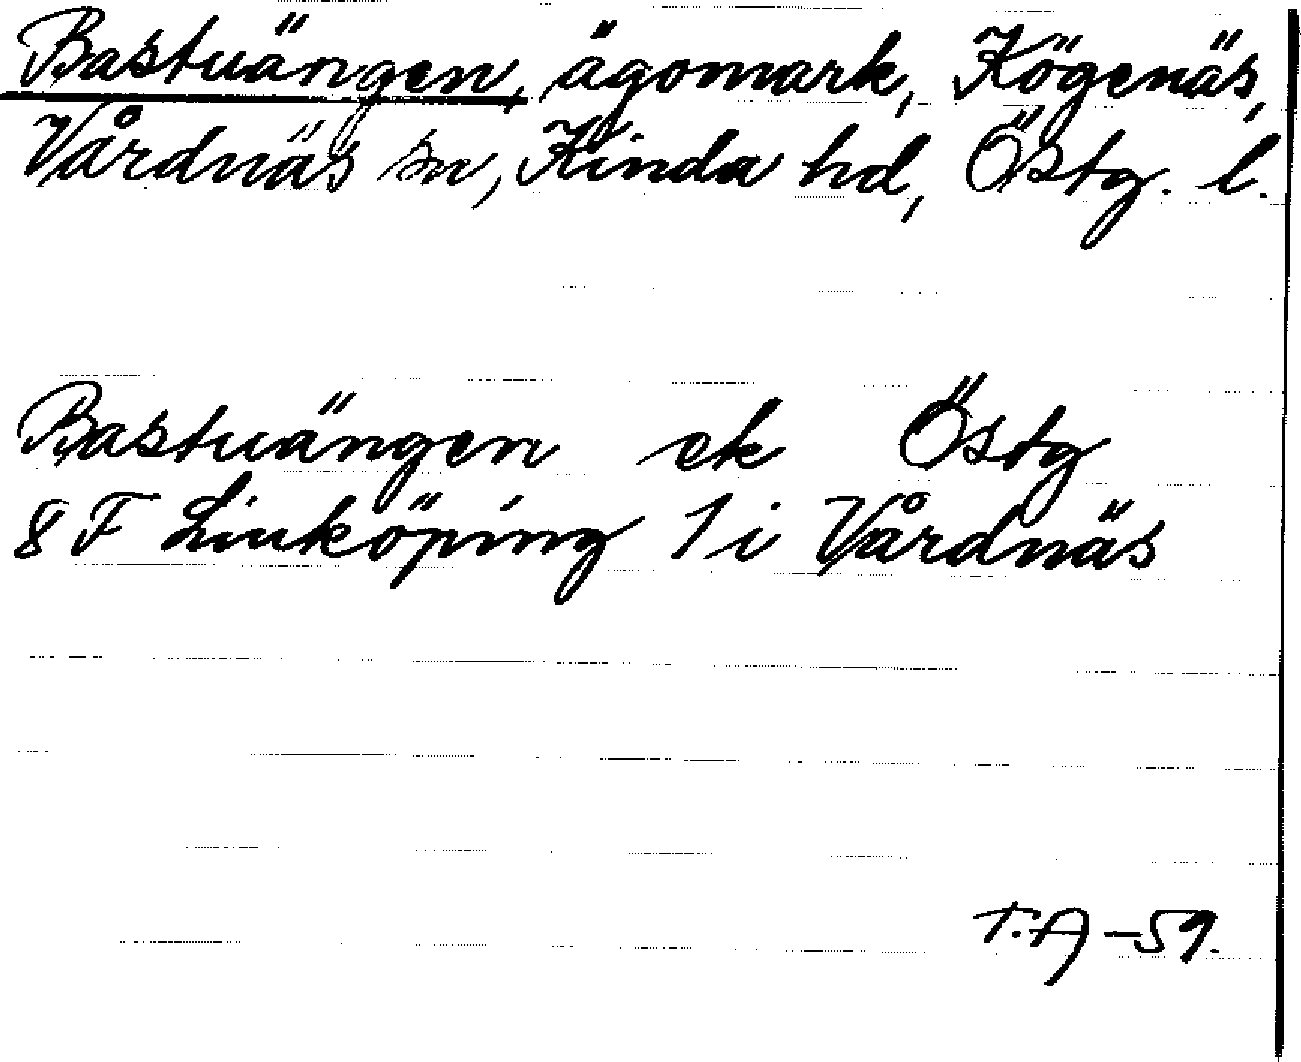 Bastuängen, ägomark, Kögenäs,
Vårdnäs sn, Kinda hd, Östg. l.
Bastuängen ek Östg
8 F Linköping 1 i Vårdnäs
T.A -59.